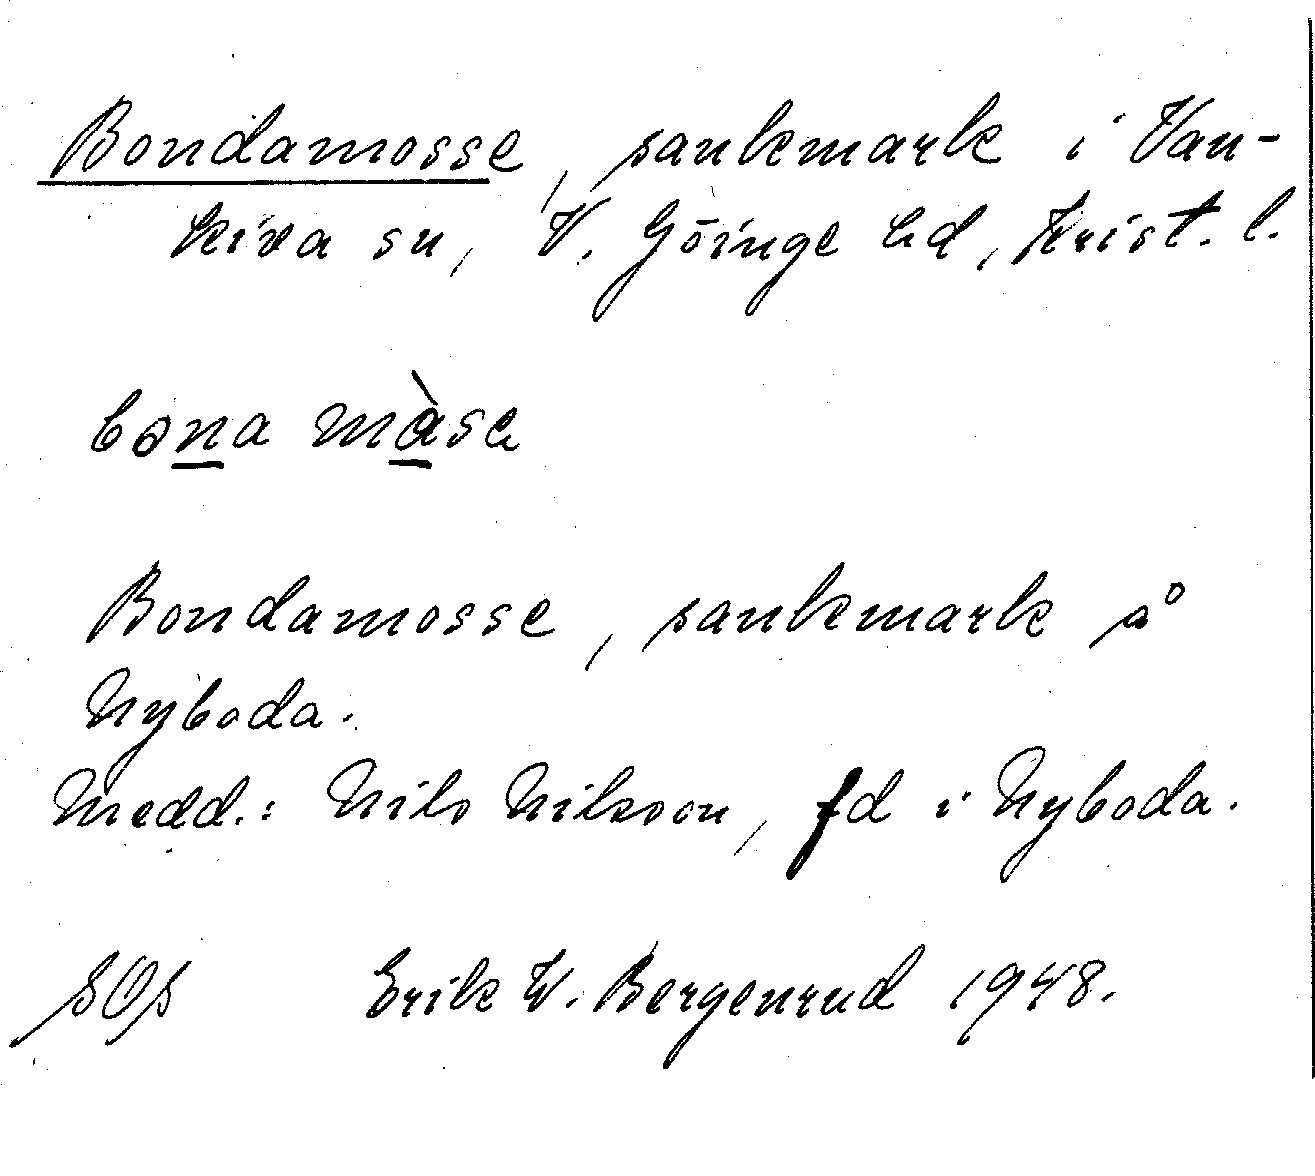 Bondamosse, sankmark i Van-
kiva sn, V. Göinge hd, Krist. l.
bona màse
Bondamosse, sankmark å
Nyboda.
Medd.: Nils Nilsson, fd i Nyboda.
SOS Erik W. Bergenrud 1948.